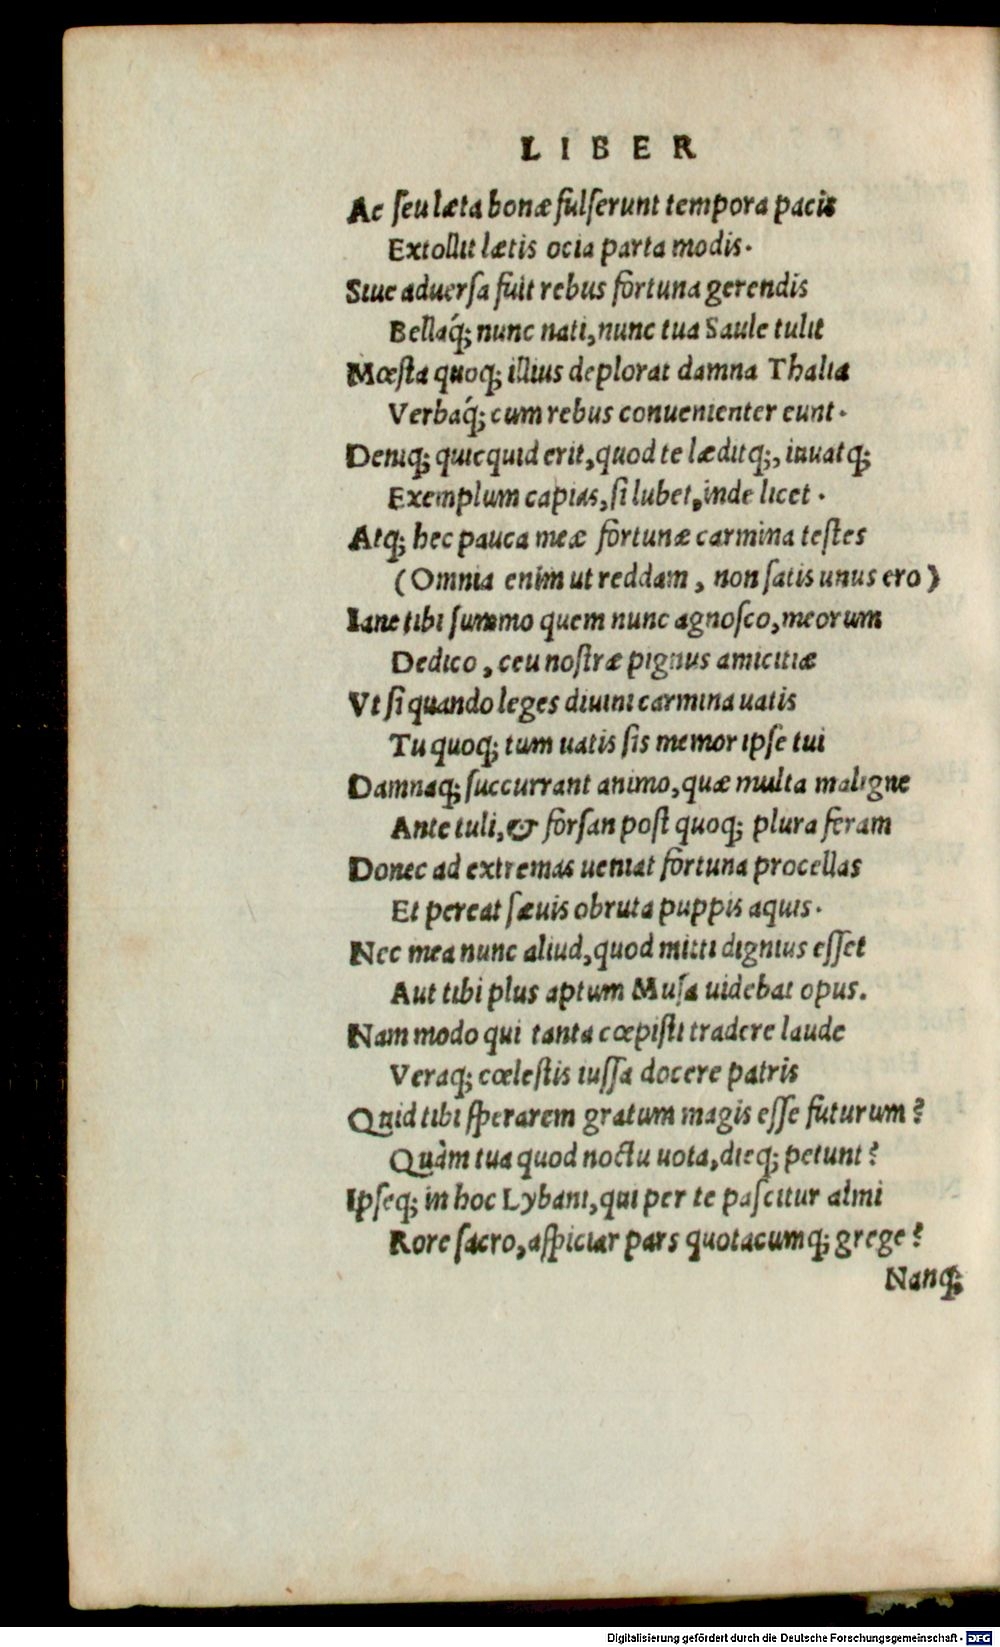 LIBER
Ac seu læta bonæ fulserunt tempora pacis
Extollit lætis ocia parta modis.
Siue aduersa fuit rebus fortuna gerendis
Bellaq́; nunc nati, nunc tua Saule tulit
Mœsta quoq; illius deplorat damna Thalia
Verbaq́; cum rebus conuenienter eunt.
Deniq; quicquid erit, quod te læditq;, iuuatq;
Exemplum capias, si lubet, inde licet.
Atq; hec pauca meæ fortunæ carmina testes
(Omnia enim ut reddam, non satis unus ero)
Iane tibi summo quem nunc agnosco, meorum
Dedico, ceu nostræ pignus amicitiæ
Vt si quando leges diuini carmina uatis
Tu quoq; tum uatis sis memor ipse tui
Damnaq; succurrant animo, quæ multa maligne
Ante tuli, & forsan post quoq; plura feram
Donec ad extremas ueniat fortuna procellas
Et pereat sæuis obruta puppis aquis.
Nec mea nunc aliud, quod mitti dignius esset
Aut tibi plus aptum Musa uidebat opus.
Nam modo qui tanta cœpisti tradere laude
Veraq; cœlestis iussa docere patris
Quid tibi sperarem gratum magis esse futurum?
Quàm tua quod noctu uota, dieq; petunt?
Ipseq; in hoc Lybani, qui per te pascitur almi
Rore sacro, aspiciar pars quotacumq; grege?
Nanq;
Digitalisierung gefördert durch die Deutsche Forschungsgemeinschaft - DFG